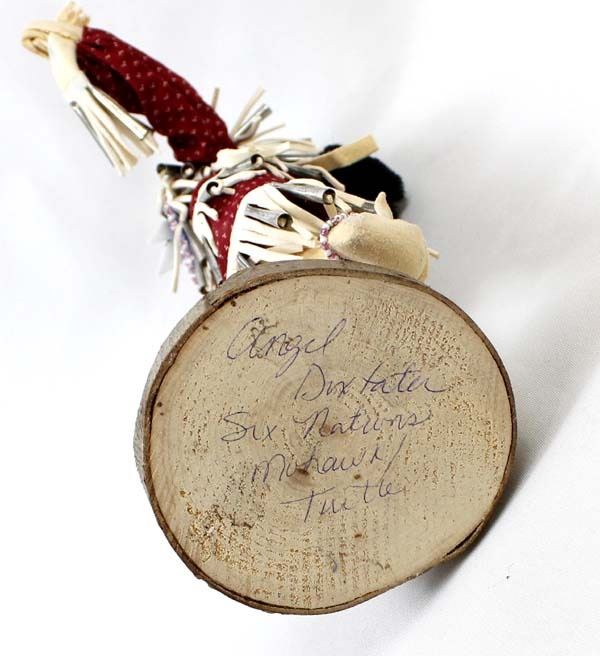 Angel
Doxtater
Six Nations
Mohawk/
Turtle